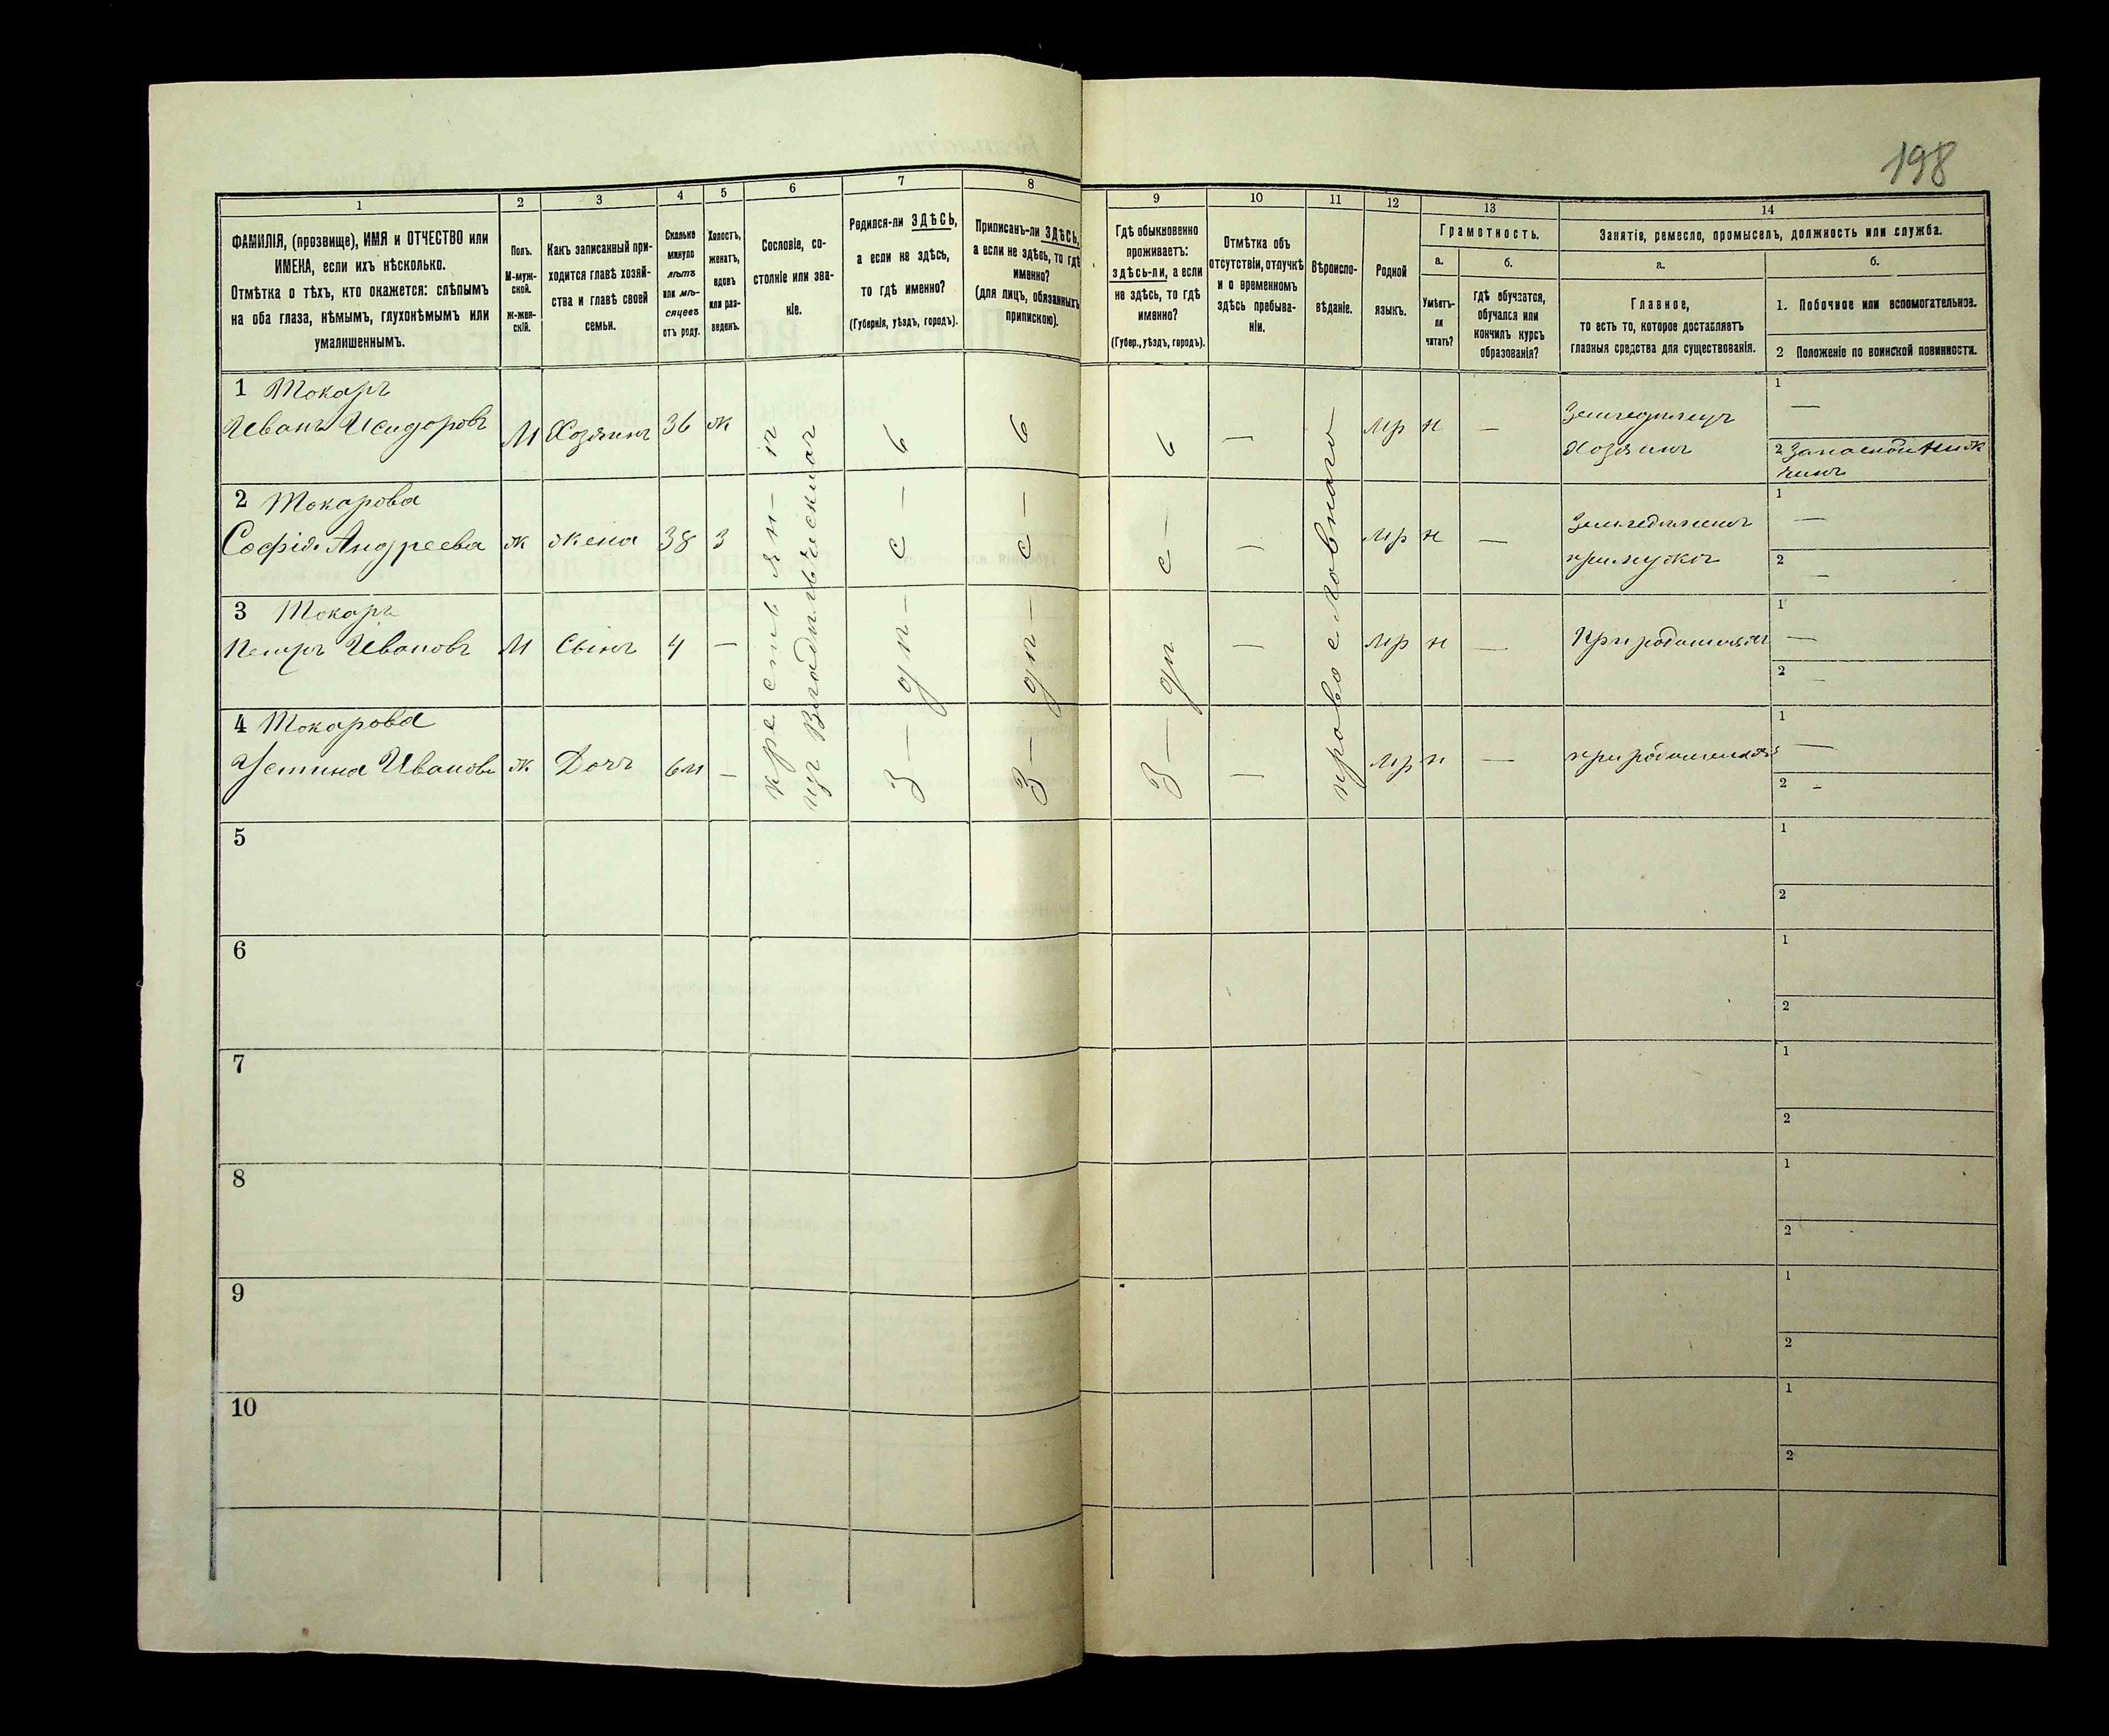 198
1
2
3
4
5
6
7
8
9
10
11
12
13
14
ФАМИЛІЯ, (прозвище), ИМЯ и ОТЧЕСТВО или
ИМЕНА, если ихъ нѣсколько.
Отмѣтка о тѣхъ, кто окажется: слѣпымъ
на оба глаза, нѣмымъ, глухонѣмымъ или
умалишеннымъ.
Полъ.
М-муж-
ской.
Ж-жен-
скій.
Какъ записанный при-
ходится главѣ хозяй-
ства и главѣ своей
семьи.
Сколько
минуло
лѣтъ
или мѣ-
сяцевъ
отъ роду.
Холостъ,
женатъ,
вдовъ
или раз-
веденъ.
Сословіе, со-
стояніе или зва-
ніе.
Родился-ли ЗДѢСЬ,
а если не здѣсь,
то гдѣ именно?
(Губернія, уѣздъ, городъ).
Приписанъ-ли ЗДѢСЬ,
а если не здѣсь, то гдѣ
именно?
(для лицъ, обязанныхъ
припискою).
Гдѣ обыкновенно
проживаетъ:
здѣсь-ли, а если
не здѣсь, то гдѣ
именно?
(Губер., уѣздъ, городъ).
Отмѣтка объ
отсутствіи, отлучкѣ
и о временномъ
здѣсь пребыва-
ніи.
Вѣроиспо-
вѣданіе.
Родной
языкъ.
Грамотность.
а.
Умѣетъ-
ли
читать?
б.
гдѣ обучается,
обучался или
кончилъ курсъ
образованія?
Занятіе, ремесло, промыселъ, должность или служба.
а.
Главное,
то есть то, которое доставляетъ
главныя средства для существованія.
б.
1. Побочное или вспомогательное.
2 Положеніе по воинской повинности.
1 Токарь
Иванъ Исидоровъ М Хозяинъ 36 ж — мр н —
Земледѣлецъ
Хозяинъ
1 —
2 Запасной ниж
чинъ
2 Токарова
Софія Андреева ж жена 38 з — мр н —
1 —
2 —
3 Токарь
Петръ Ивановъ М Сынъ 4 — — мр н — При родителяхъ
1 —
2 —
4 Токарова
Устина Иванова ж Дочь 6м — — мр н — при родителяхъ
1 —
2 —
крестьян- и
здѣсь
здѣсь
здѣсь
православнаго
5
1
2
6
1
2
7
1
2
8
1
2
9
1
2
10
1
2